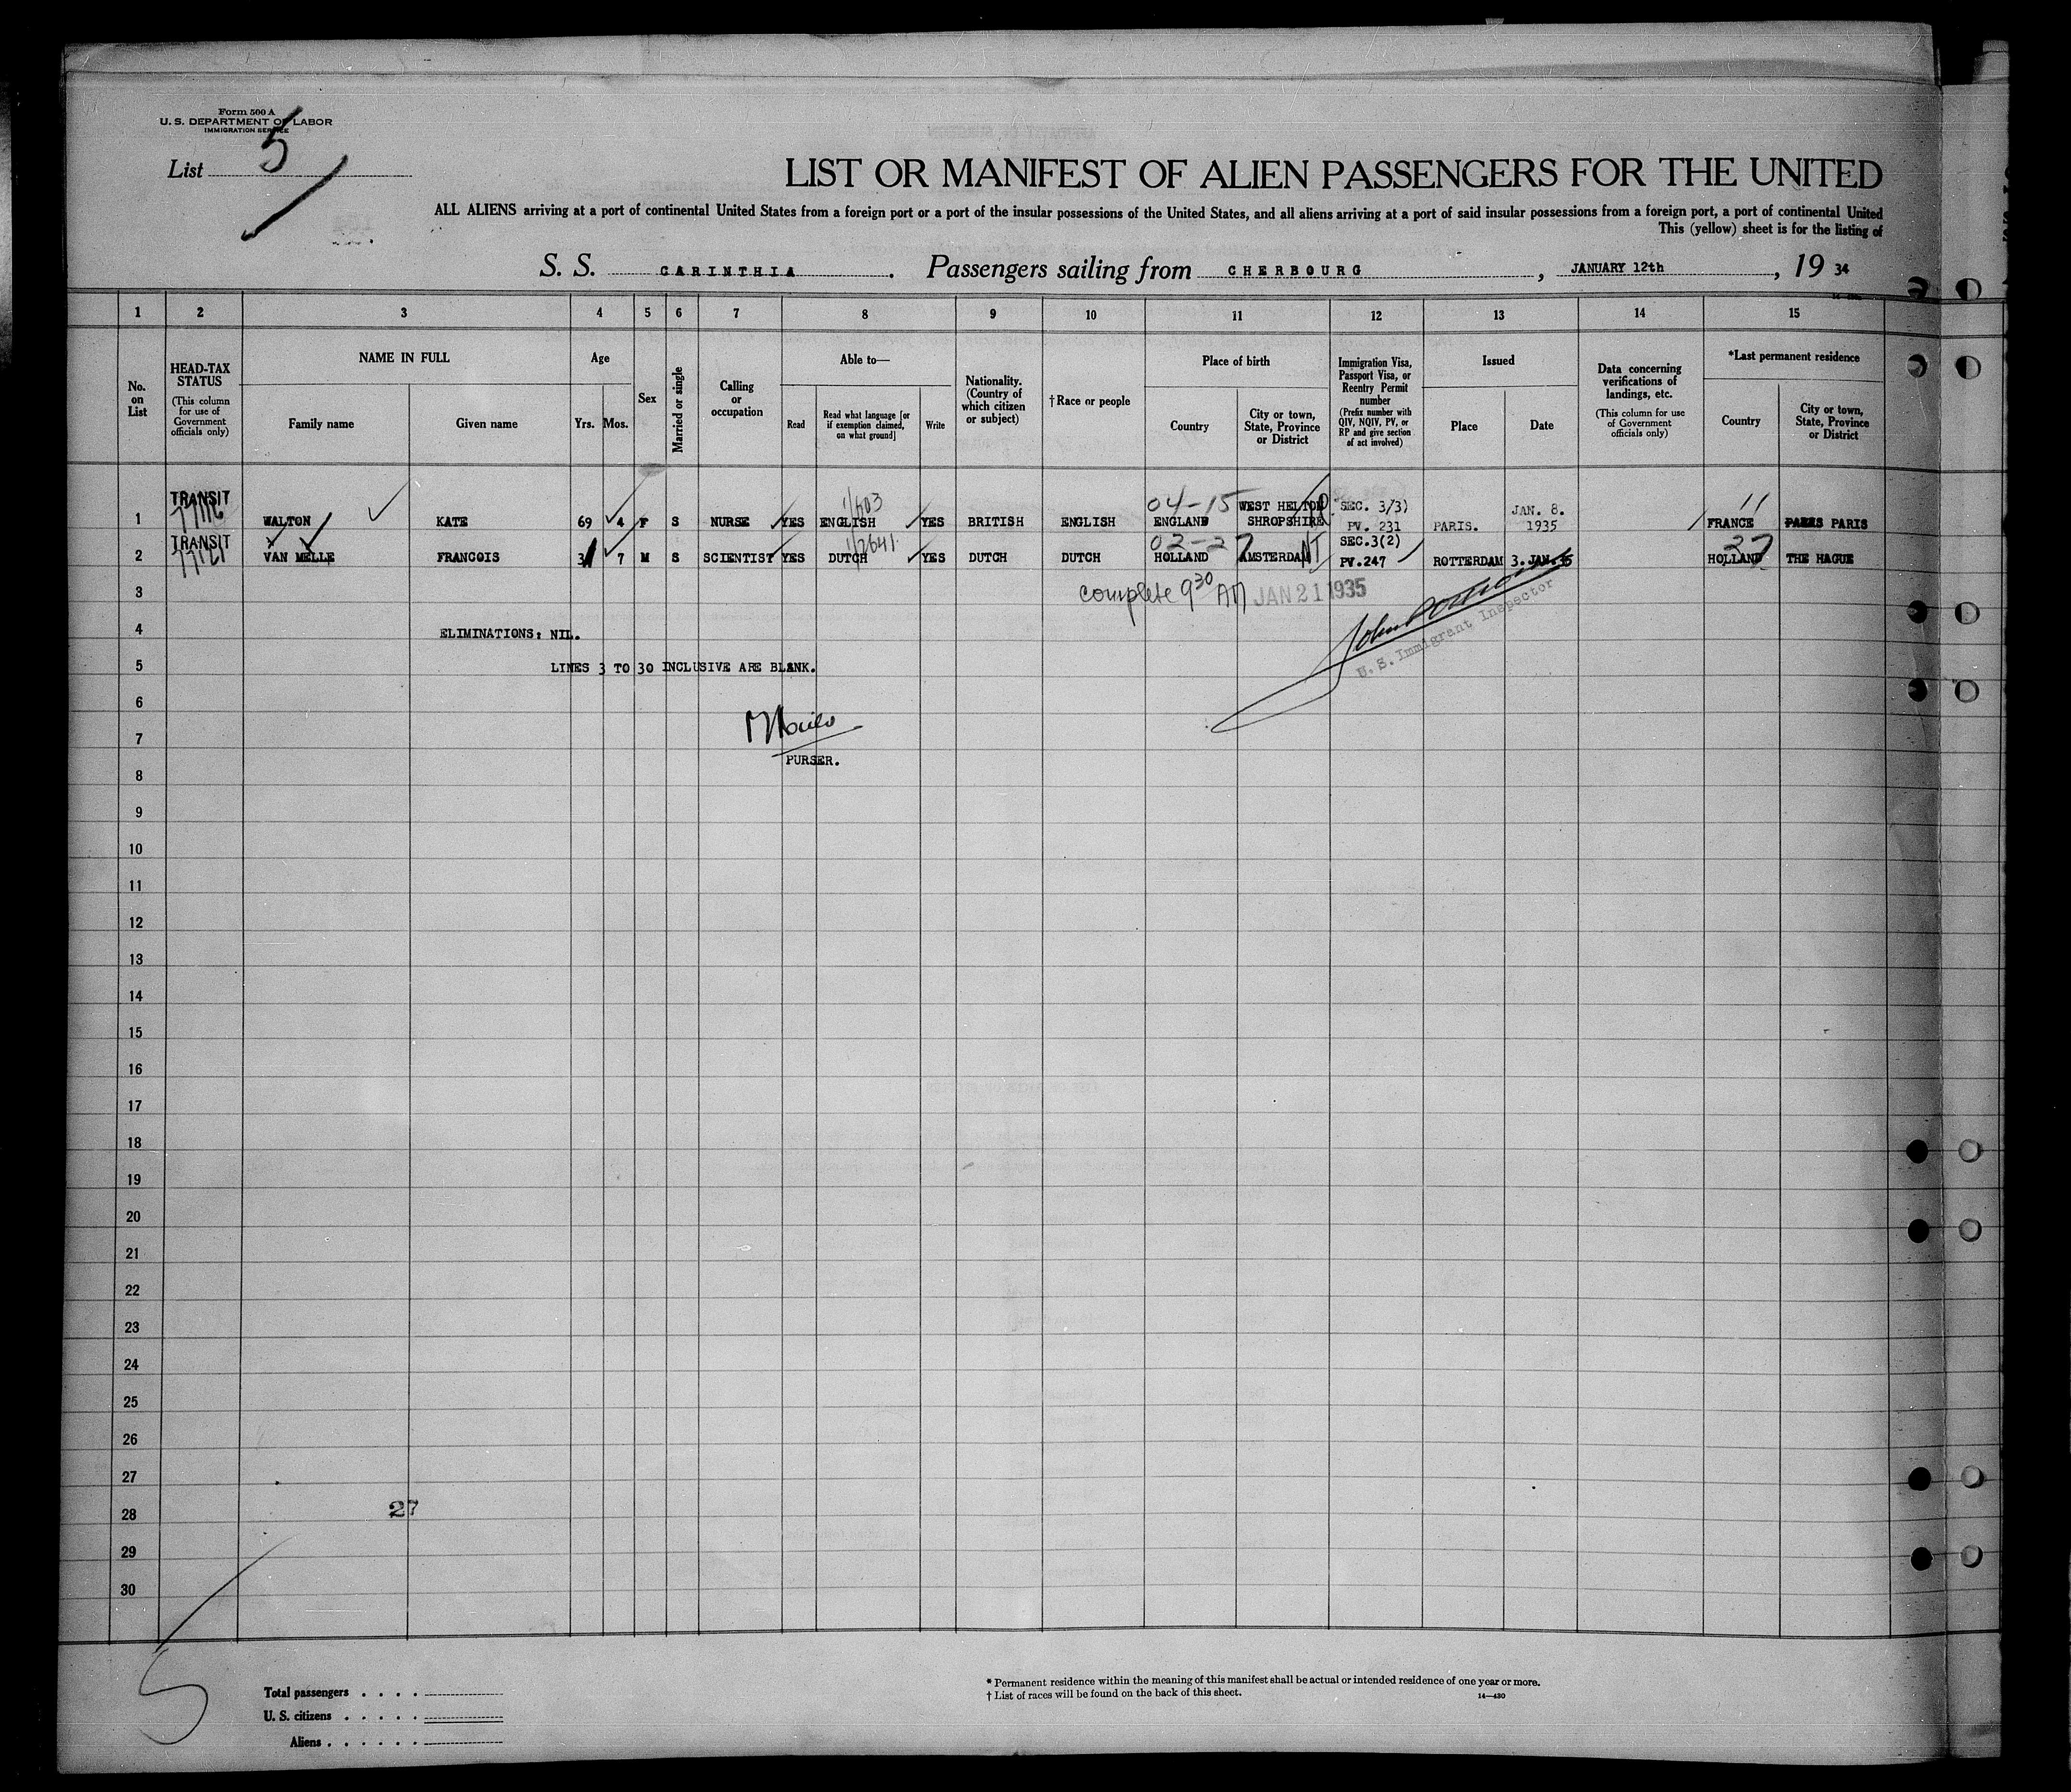 Form 500 A
U. S. DEPARTMENT OF LABOR
IMMIGRATION SERVICE
List 5
LIST OR MANIFEST OF ALIEN PASSENGERS FOR THE UNITED
ALL ALIENS arriving at a port of continental United States from a foreign port or a port of the insular possessions of the United States, and all aliens arriving at a port of said insular possessions from a foreign port, a port of continental United
This (yellow) sheet is for the listing of
S. S. CARINTHIA. Passengers sailing from CHERBOURG, JANUARY 12th, 19 34
1 2 3 4 5 6 7 8 9 10 11 12 13 14 15
No. on List
HEAD-TAX STATUS
(This column for use of Government officials only)
NAME IN FULL
Family name
Given name
Age
Yrs. Mos.
Sex
Married or single
Calling or occupation
Able to—
Read
Read what language [or if exemption claimed, on what ground]
Write
Nationality. (Country of which citizen or subject)
†Race or people
Place of birth
Country
City or town, State, Province or District
Immigration Visa, Passport Visa, or Reentry Permit number
(Prefix number with QIV, NQIV, PV, or RP and give section of act involved)
Issued
Place
Date
Data concerning verifications of landings, etc.
(This column for use of Government officials only)
*Last permanent residence
Country
City or town, State, Province or District
TRANSIT 04-15 WEST HELTON SEC. 3/3) JAN. 8. 11
1 WALTON KATE 69 4 F S NURSE YES ENGLISH YES BRITISH ENGLISH ENGLAND SHROPSHIRE PV. 231 PARIS. 1935 FRANCE PARIS PARIS
TRANSIT 02-27 SEC.3(2) 27
2 VAN MELLE FRANCOIS 31 7 M S SCIENTIST YES DUTCH YES DUTCH DUTCH HOLLAND AMSTERDAM PV.247 ROTTERDAM 3.JAN.35 HOLLAND THE HAGUE
3 complete 9 30 AM JAN 21 1935
4 ELIMINATIONS: NIL.
U. S. Immigrant Inspector
5 LINES 3 TO 30 INCLUSIVE ARE BLANK.
6
7
PURSER.
8
9
10
11
12
13
14
15
16
17
18
19
20
21
22
23
24
25
26
27
28 27
29
30
5
Total passengers . . . .
U. S. citizens . . . . .
Aliens . . . . . .
* Permanent residence within the meaning of this manifest shall be actual or intended residence of one year or more.
† List of races will be found on the back of this sheet.
14—430